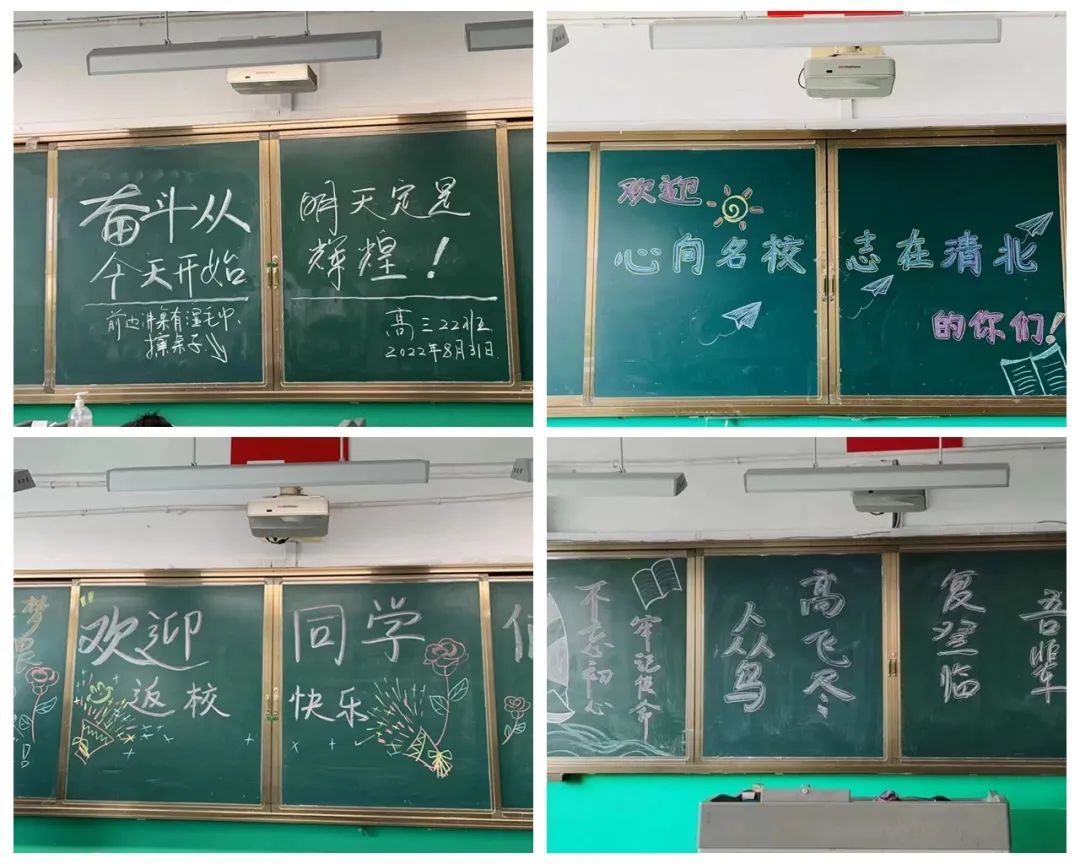 奋斗从
今天开始
前边讲桌有湿毛巾、
擦桌子
明天定是
辉煌！
高三22班
2022年8月31日
欢迎
心向名校 志在清北
的你们！
梦
欢迎同学
返校快乐
不忘初心
牢记使命
众鸟
高飞尽
复登临
吾辈